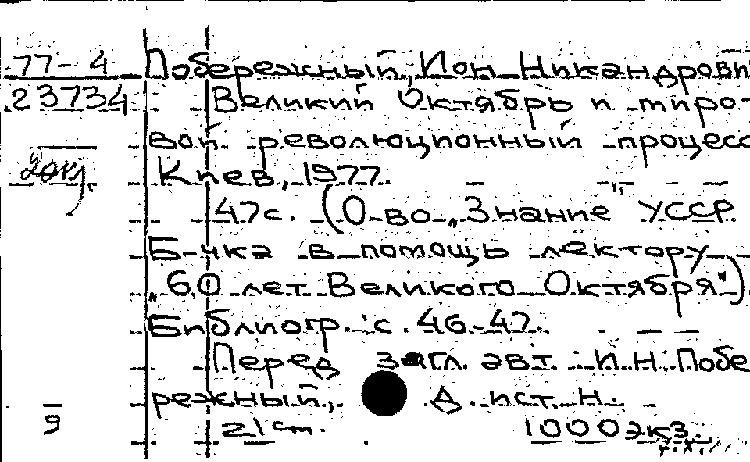 77-4 Побережный, Ион Никандрови
23734 Великий Октябрь и миро-
вой революционный процесс
2 окз. Киев, 1977.
47с. (О-во „Знание" УССР
Б-чка в помощь лектору
„60 лет Великого Октября").
Библиогр. с. 46-47.
Перед загл. авт.: И.Н. Побе
режный, д. ист. н.
9 21 см. 1000 экз.